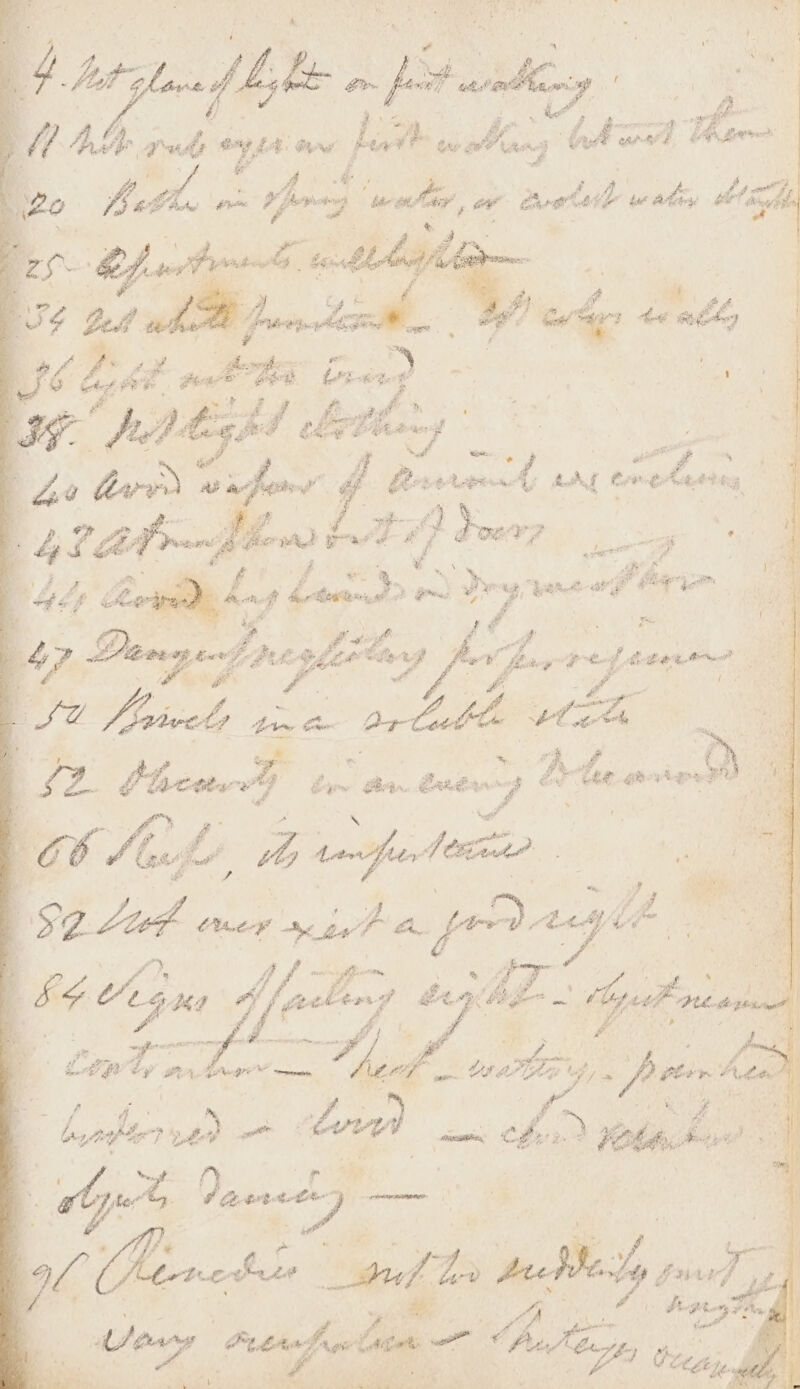 4. Not glare of light on first waking
11 Not rub eyes on first waking but wet them
20 Bathe in spring water, or coolest water
25 Apartments well lighted
34 Not white furniture — colors walls
36 light not too
38. Not tight clothing
40 Avoid vapour of animal excretions
43 Atmosphere out of doors
44 Avoid high winds in dry weather
47 Danger of neglecting proper regimen
50 Bowels in a soluble state
52 Obscurity in an evening to be avoided
66 Sleep, its importance
82 Not over exert a good sight
84 Signs of failing sight — object nearer
contraction — heat — watery — pain head
— cloud — cloud
objects dancing —
91 Remedies not too suddenly omit
anything
Vary occupation — Shut eyes occasionally